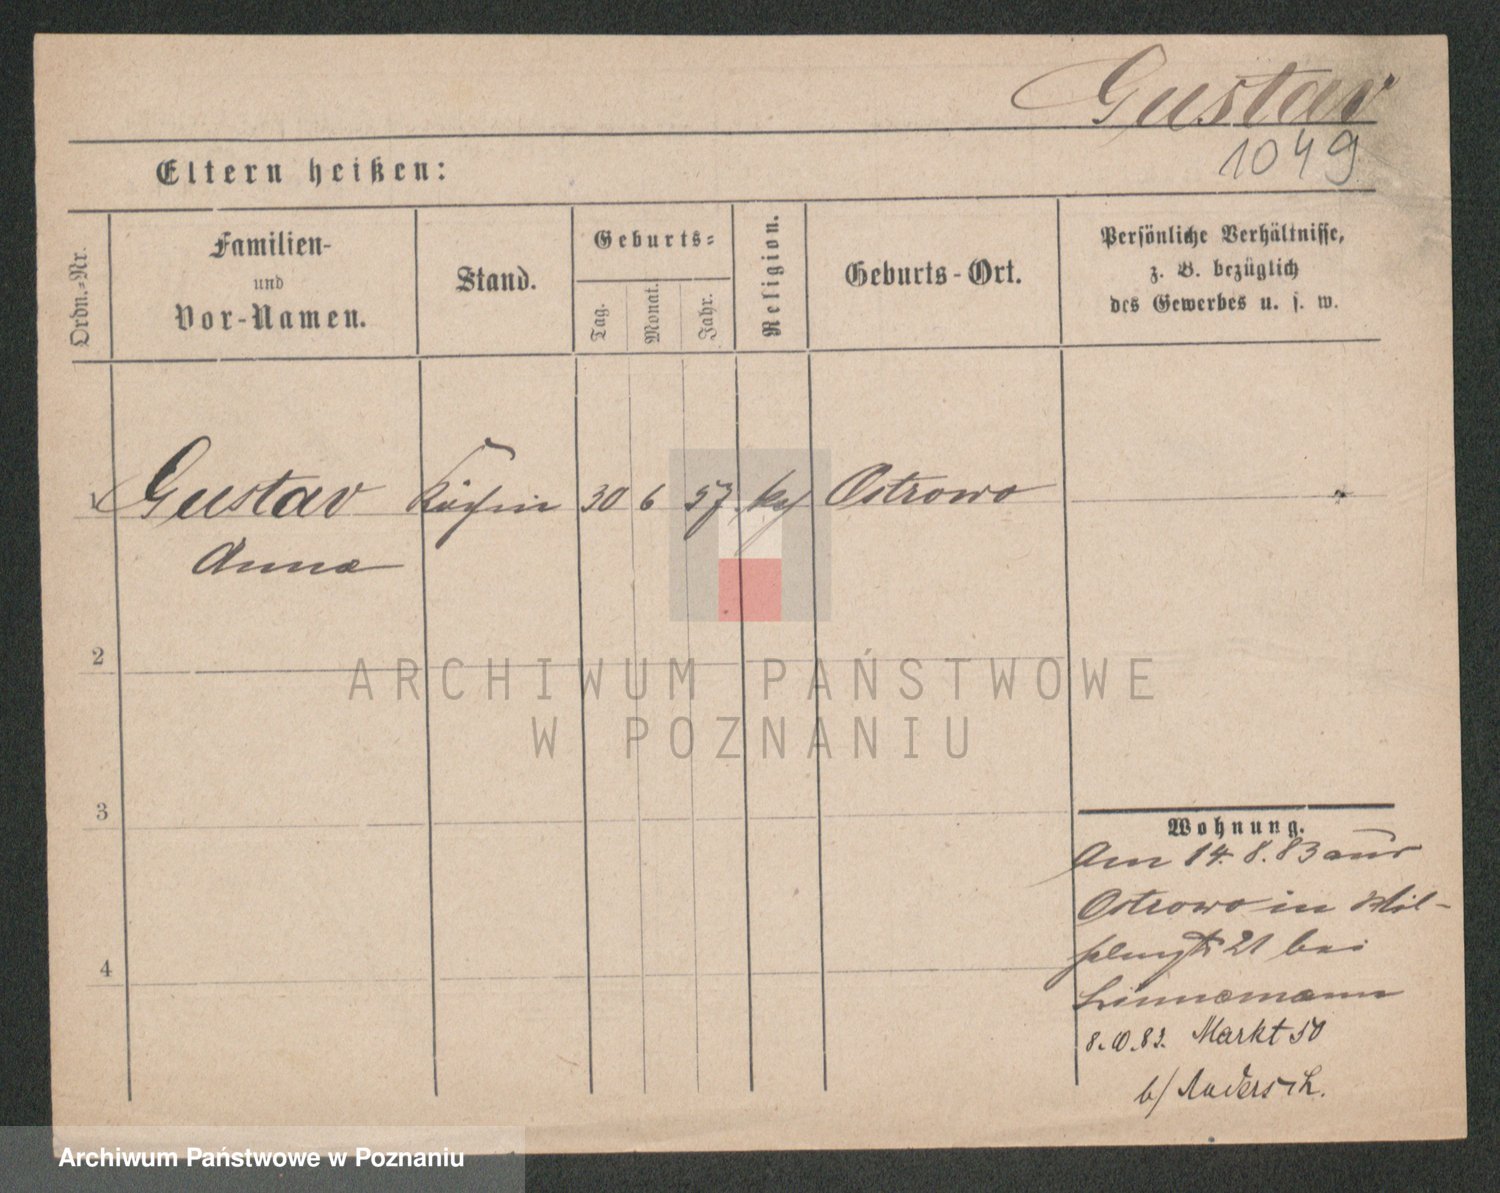 Gustav
1049
Eltern heißen:
Ordn.-Nr.
Familien-
und
Vor-Namen.
Stand.
Geburts-
Tag.
Monat.
Jahr.
Religion.
Geburts-Ort.
Persönliche Verhältnisse,
z. B. bezüglich
des Gewerbes u. s. w.
Gustav Köchin 30 6 57 kath Ostrowo
Anna
2
ARCHIWUM PAŃSTWOWE
W POZNANIU
3
4
Wohnung.
Am 14. 8. 83 aus
Ostrowo in
21 bei
Linnemann
8. 10. 83. Markt 50
b/ Andersch.
Archiwum Państwowe w Poznaniu